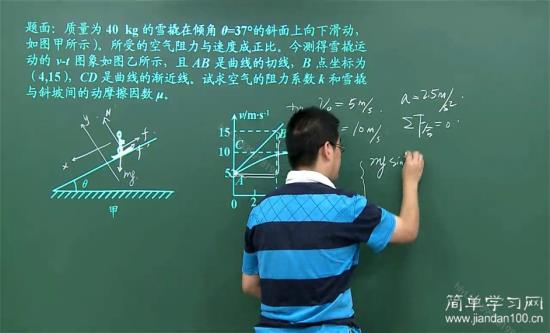 题面：质量为 40 kg 的雪撬在倾角 θ=37°的斜面上向下滑动，
如图甲所示）。所受的空气阻力与速度成正比。今测得雪撬运
动的 v-t 图象如图乙所示，且 AB 是曲线的切线，B 点坐标为
（4,15），CD 是曲线的渐近线。试求空气的阻力系数 k 和雪撬
与斜坡间的动摩擦因数 μ。
y
x
f
mg
θ
甲
v/m·s⁻¹
15
10
5
0
2
A
B
C
V₀ = 5m/s
a = 2.5m/s²
10m/s
ΣF = 0
mg sin
简单学习网
www.jiandan100.cn